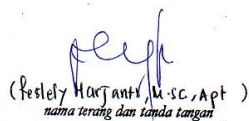 (Reslely Harjanti, M.SC, Apt)
nama terang dan tanda tangan